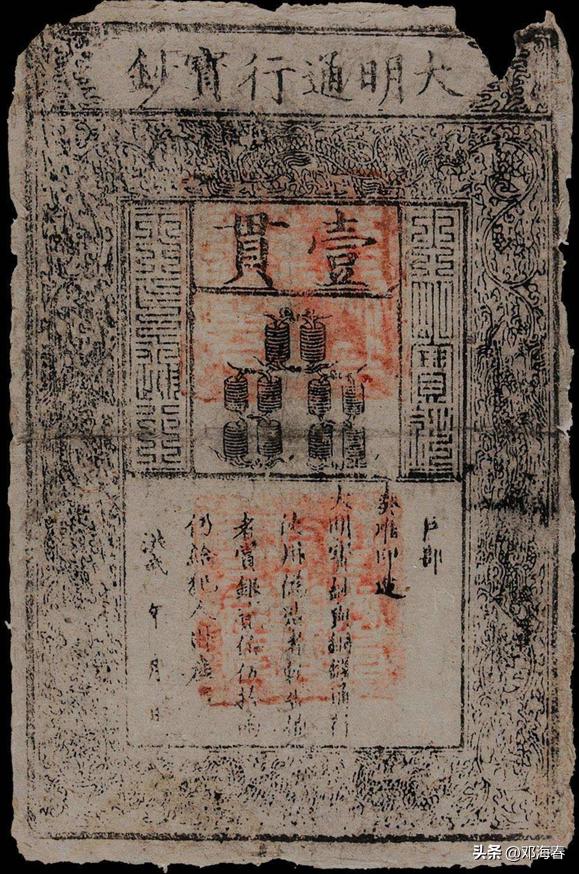 大明通行寶鈔
壹貫
大明寶鈔
天下通行
戶部
奏准印造
大明寶鈔與銅錢通行
使用偽造者斬告捕
者賞銀貳佰伍拾兩
仍給犯人財產
洪武 年 月 日
头条 @邓海春